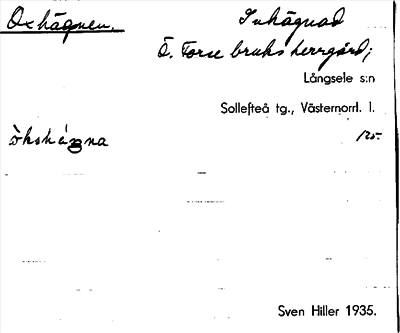 Oxhägnen.
Inhägnad
Ö. Forse bruks herrgård;
Långsele s:n
Sollefteå tg., Västernorrl. l.
òkshágna
Sven Hiller 1935.